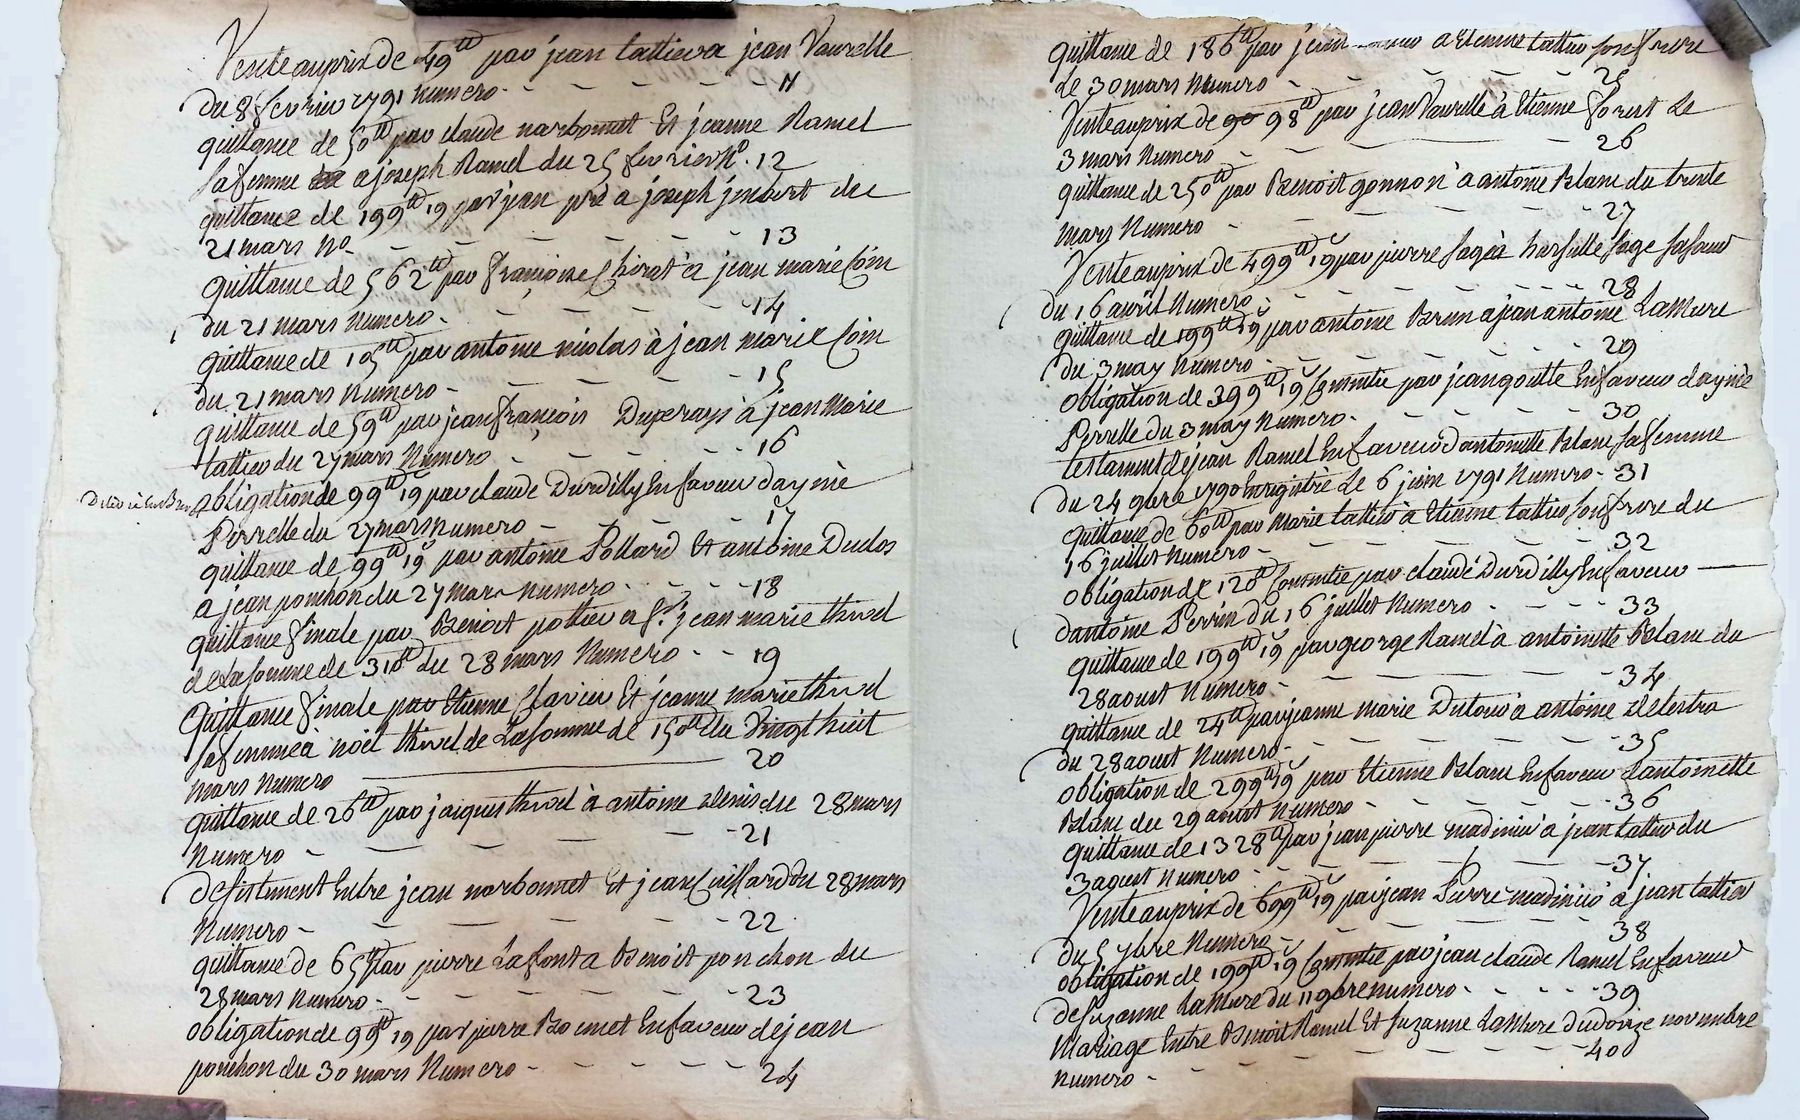 Vente au prix de 49ᵗᵗ par jean tattieu a jean Vaurelle
du 8 fevrier 1791 numero - - - - - 11
quittance de 50ᵗᵗ par claude narbonnet Et jeanne Ramel
sa femme a joseph Ramel du 25 fevrier N°. 12
quittance de 199ᵗᵗ 19 par jean pré a joseph jmbert du
21 mars N° - - - - - - 13
quittance de 562ᵗᵗ par françoise Chirat a jean marie Coin
du 21 mars numero - - - - - 14
quittance de 105ᵗᵗ par antoine nicolas à jean marie Coin
du 21 mars numero - - - - - 15
quittance de 59ᵗᵗ par jean françois Duperays à jean Marie
tattieu du 27 mars Numero - - - - 16
obligation de 99ᵗᵗ 19 par claude Durdilly En faveur daymè
Perrelle du 27 mars numero - - - - 17
quittance de 99ᵗᵗ 19 par antoine Pollard Et antoine Duclos
a jean ponchon du 27 mars numero - - - - 18
quittance finale par Benoit pottieu a Sʳ. jean marie thivel
de la somme de 310ᵗᵗ du 28 mars Numero - - 19
Quittance finale par Etienne Clavieu Et jeanne marie thivel
sa femme à noël thivel de La somme de 150ᵗᵗ du Vingt huit
mars Numero 20
quittance de 26ᵗᵗ par jacques thivel à antoine denis du 28 mars
Numero - - - - - - 21
desistement Entre jean narbonnet Et jean Cuissard du 28 mars
Numero - - - - - 22
quittance de 65ᵗᵗ par pierre Lafont a Benoit ponchon du
28 mars Numero - - - - - 23
obligation de 99ᵗᵗ 19 par pierre Bonnet En faveur de jean
ponchon du 30 mars Numero - - - - - 24
quittance de 186ᵗᵗ par jean a Etienne tattieu son frere
Le 30 mars Numero - - - - - 25
Vente au prix de 90 98ᵗᵗ par jean Vaurelle à Etienne forest Le
3 mars Numero - - - - 26
quittance de 250ᵗᵗ par Benoit gonnon à antoine Blanc du trente
mars Numero - - - - - 27
Vente au prix de 499ᵗᵗ 19 par pierre sage à sage sa sœur
du 16 avril Numero - - - - - 28
quittance de 199ᵗᵗ 19 par antoine Brun a jean antoine LaMure
du 3 may Numero - - - - - 29
obligation de 399ᵗᵗ 19 Consentie par jean goutte En faveur daymèe
Perrelle du 3 may Numero - - - - - 30
testament de jean Ramel En faveur dantoinette Blanc sa femme
du 24 9bre 1790 Enregistrè Le 6 juin 1791 Numero - 31
quittance de 60ᵗᵗ par Marie tattieu à Etienne tattieu son frere du
16 juillet Numero - - - - - 32
obligation de 120ᵗᵗ Consentie par claude Durdilly En faveur
dantoine Perrin du 16 juillet Numero - - - - 33
quittance de 199ᵗᵗ 19 par george Ramel à antoinette Blanc du
28 aoust Numero - - - - - 34
quittance de 24ᵗᵗ par jeanne marie Dutour à antoine delestra
du 28 aoust Numero - - - - - 35
obligation de 299ᵗᵗ 19 par Etienne Blanc En faveur dantoinette
Blanc du 29 aoust Numero - - - - - 36
quittance de 1328ᵗᵗ par jean pierre madinier à jean tattieu du
3 aoust Numero - - - - - 37
Vente au prix de 699ᵗᵗ 19 par jean Pierre madinier à jean tattieu
du 5 7bre Numero - - - - - 38
obligation de 199ᵗᵗ 19 Consentie par jean claude Ramel En faveur
de suzanne LaMure du 11 9bre numero - - - - 39
Mariage Entre Benoit Ramel Et suzanne LaMure du onze novembre
numero - - - - - 40